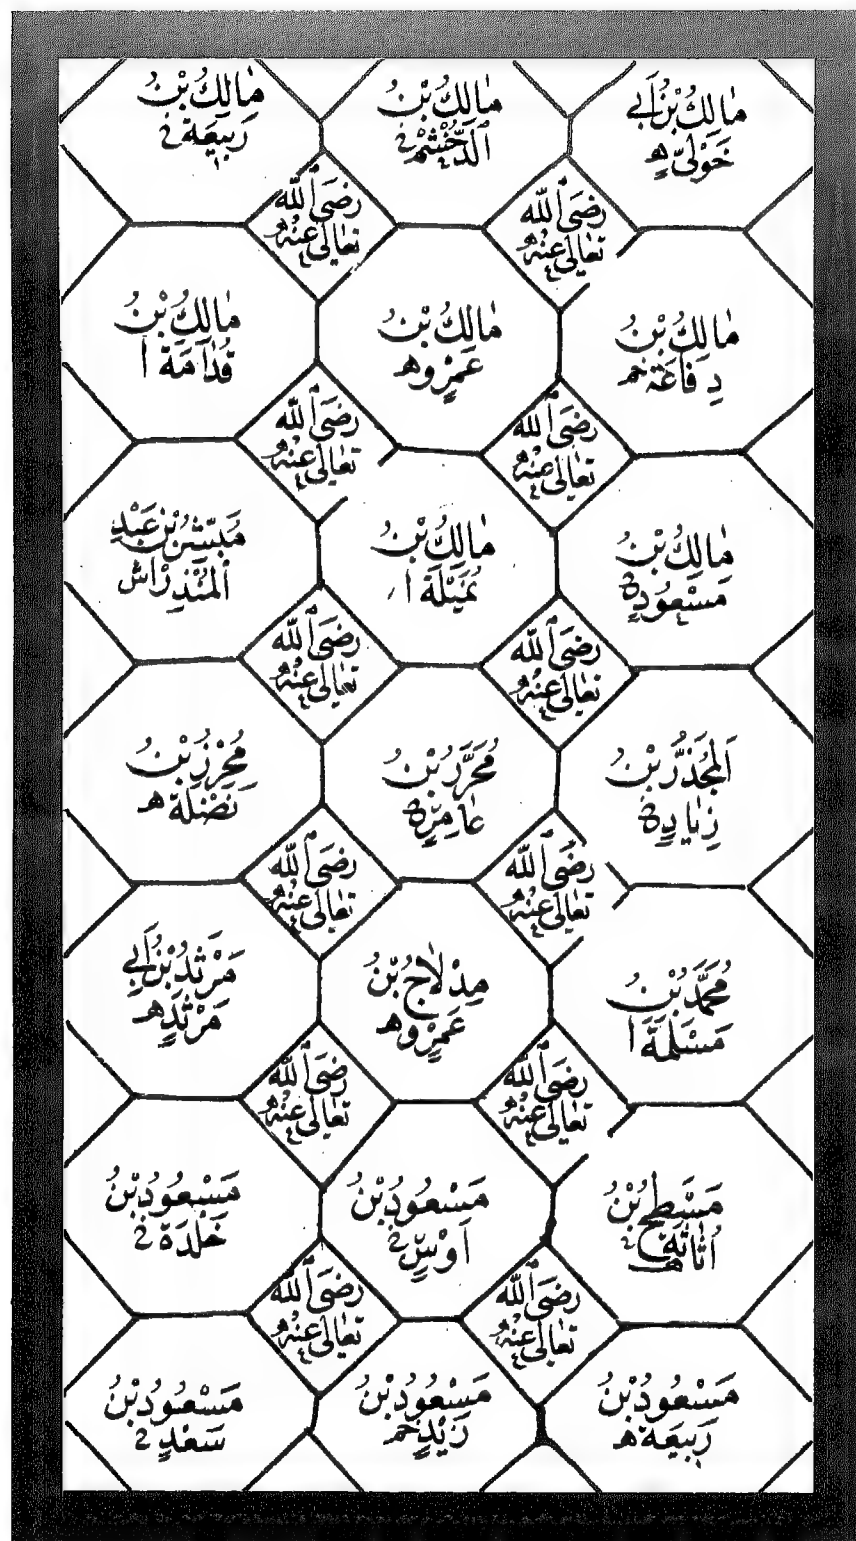 مَالِكُ بْنُ أَبِي
خَوْلِيٍّ هـ
مَالِكُ بْنُ
الدُّخْشُمِ خ
مَالِكُ بْنُ
رَبِيعَةَ خ
رَضِيَ اللّٰهُ
تَعَالٰى عَنْهُ
رَضِيَ اللّٰهُ
تَعَالٰى عَنْهُ
مَالِكُ بْنُ
رِفَاعَةَ خم
مَالِكُ بْنُ
عَمْرٍو هـ
مَالِكُ بْنُ
قُدَامَةَ ا
رَضِيَ اللّٰهُ
تَعَالٰى عَنْهُ
رَضِيَ اللّٰهُ
تَعَالٰى عَنْهُ
مَالِكُ بْنُ
مَسْعُودٍ
مَالِكُ بْنُ
نُمَيْلَةَ ا
مُبَشِّرُ بْنُ عَبْدِ
الْمُنْذِرِ اش
رَضِيَ اللّٰهُ
تَعَالٰى عَنْهُ
رَضِيَ اللّٰهُ
تَعَالٰى عَنْهُ
اَلْمُجَذَّرُ بْنُ
زِيَادٍ
مُحَرَّرُ بْنُ
عَامِرٍ
مُحْرِزُ بْنُ
نَضْلَةَ هـ
رَضِيَ اللّٰهُ
تَعَالٰى عَنْهُ
رَضِيَ اللّٰهُ
تَعَالٰى عَنْهُ
مُحَمَّدُ بْنُ
مَسْلَمَةَ ا
مِدْلَاجُ بْنُ
عَمْرٍو هـ
مَرْثَدُ بْنُ أَبِي
مَرْثَدٍ هـ
رَضِيَ اللّٰهُ
تَعَالٰى عَنْهُ
رَضِيَ اللّٰهُ
تَعَالٰى عَنْهُ
مِسْطَحُ بْنُ
اُثَاثَةَ هـ
مَسْعُودُ بْنُ
اَوْسٍ
مَسْعُودُ بْنُ
خَلْدَةَ
رَضِيَ اللّٰهُ
تَعَالٰى عَنْهُ
رَضِيَ اللّٰهُ
تَعَالٰى عَنْهُ
مَسْعُودُ بْنُ
رَبِيعَةَ هـ
مَسْعُودُ بْنُ
زَيْدٍ خم
مَسْعُودُ بْنُ
سَعْدٍ